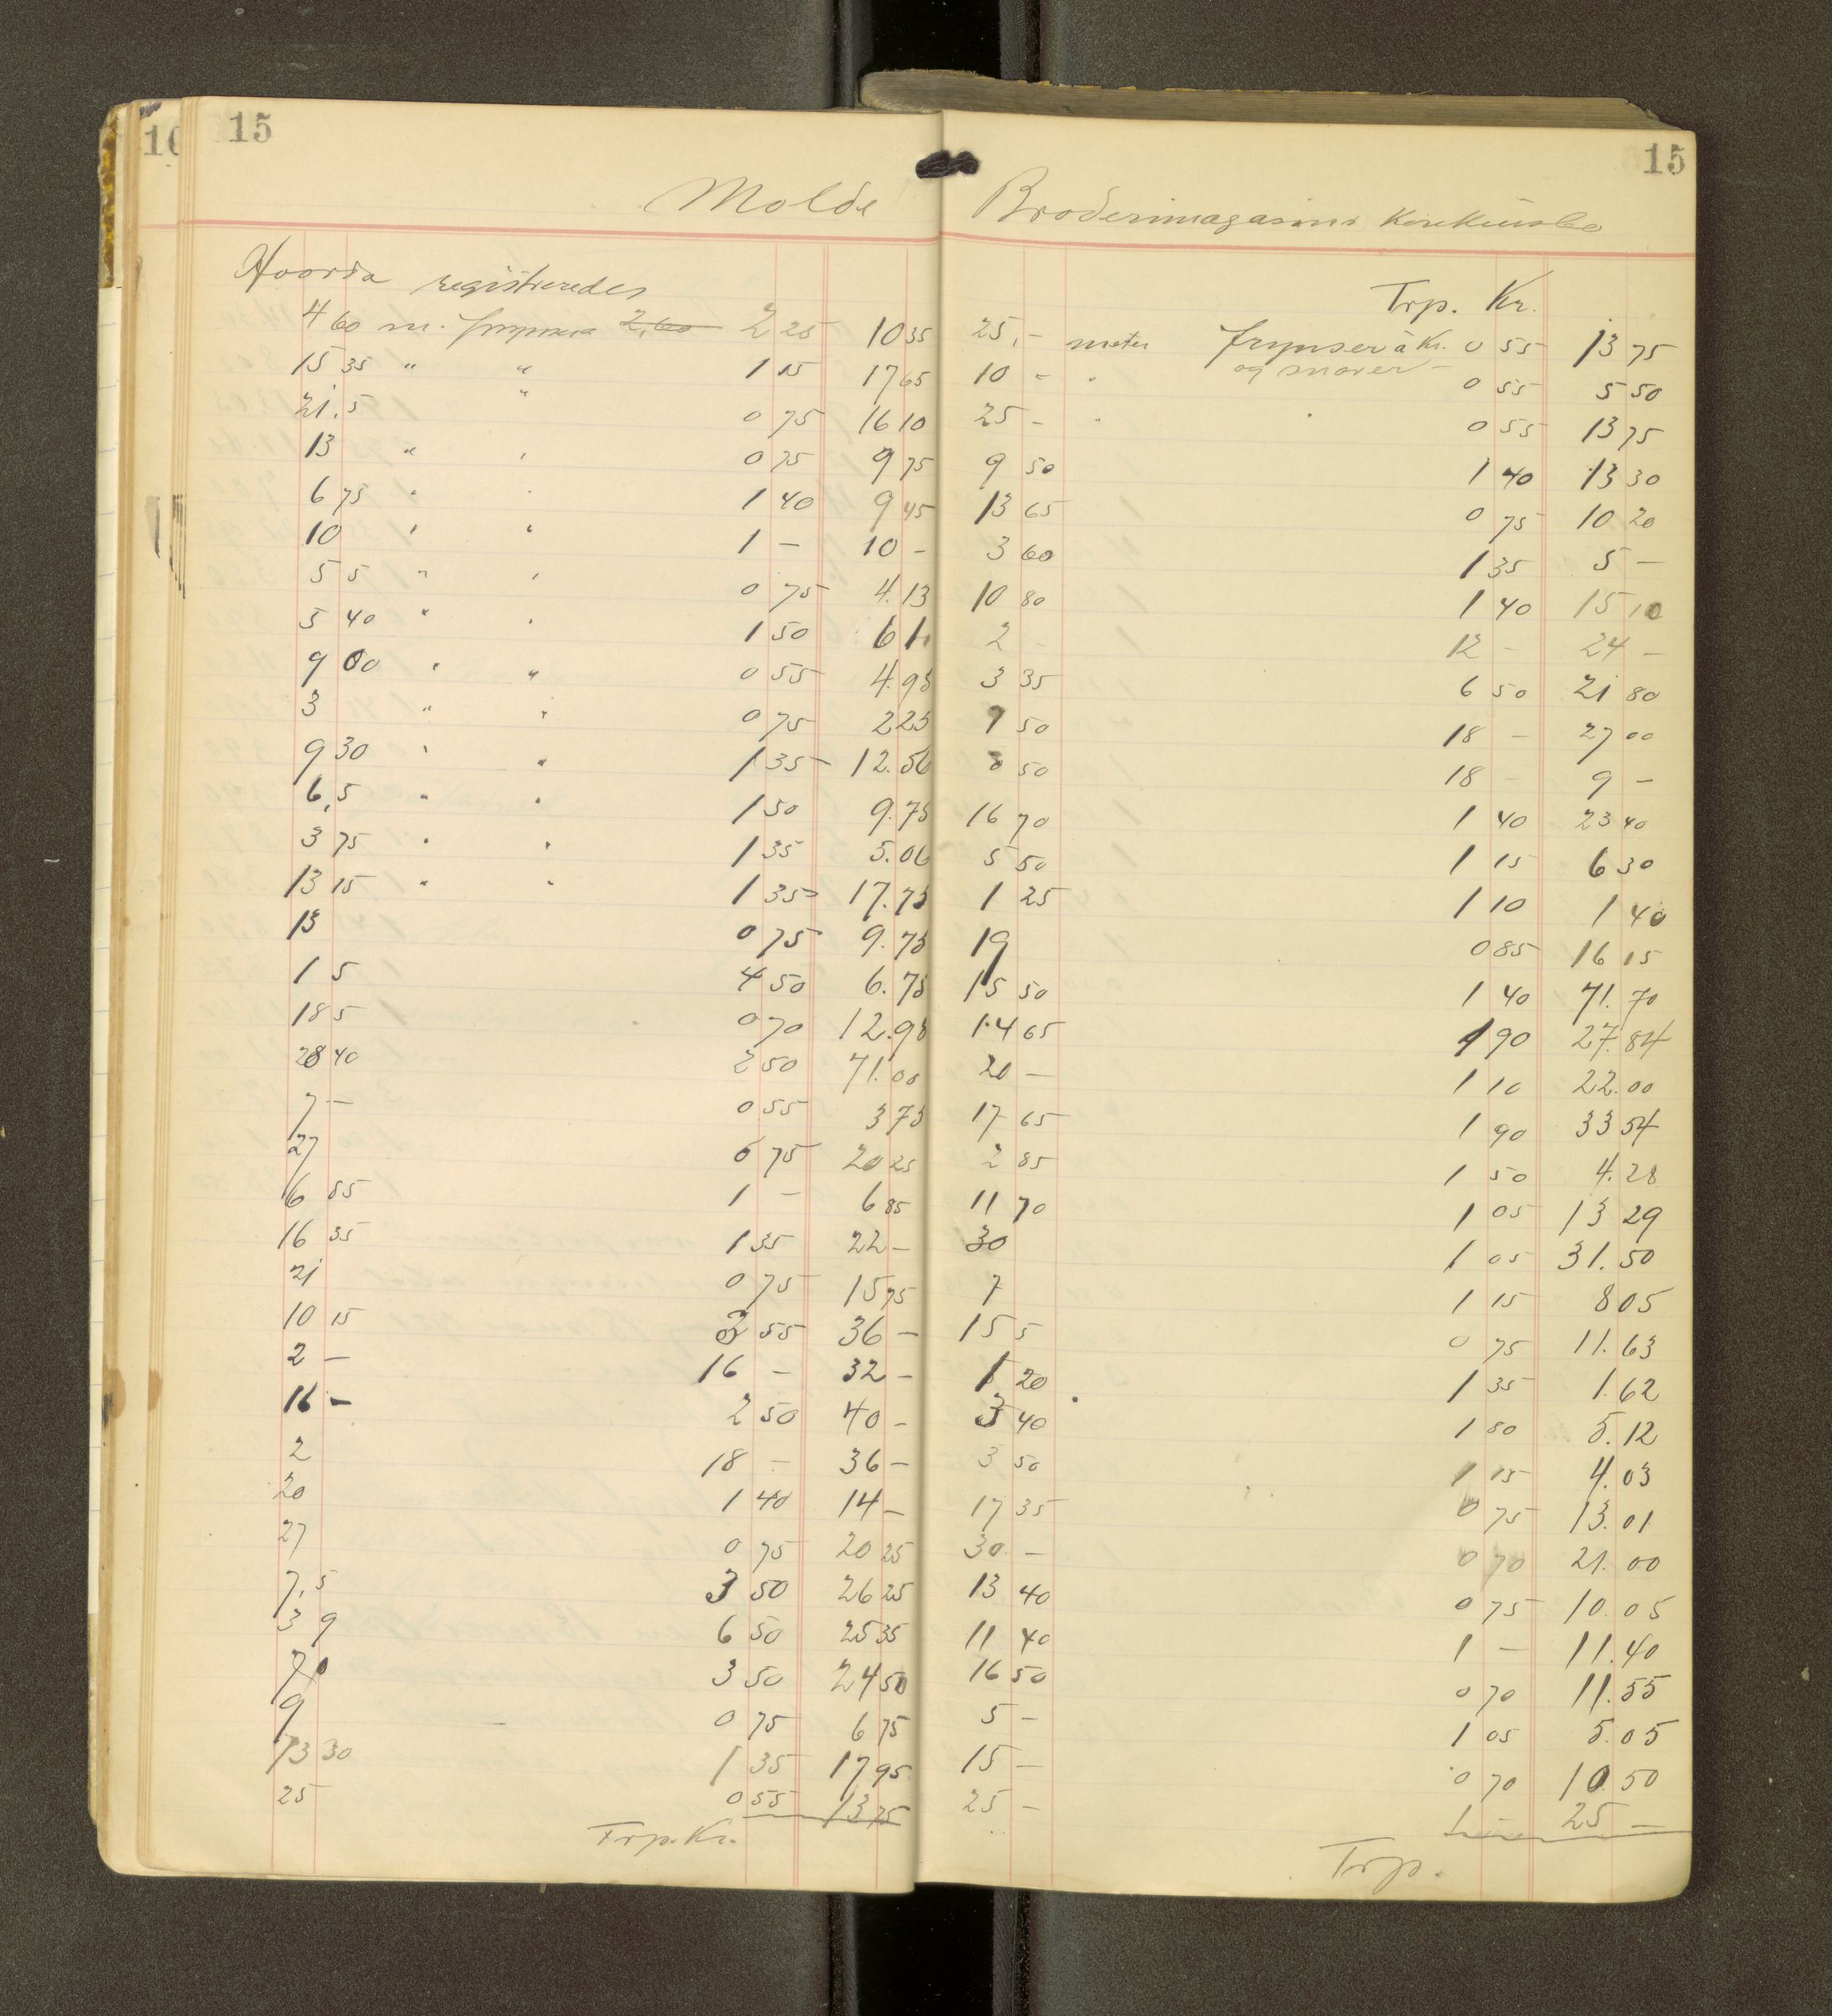 15
Molde
Hvorda registreredes
4 60 m. frynser 2,60 2 25 10 35
15 35 " " 1 15 17 65
21,5 " 0 75 16 10
13 " " 0 75 9 75
6 75 " " 1 40 9 45
10 " " 1 - 10 -
5 5 " " 0 75 4.13
5 40 " " 1 50
9 00 " " 0 55 4.95
3 " " 0 75 2 25
9 30 " " 1 35 12.56
6,5 " " 1 50 9.75
3 75 " " 1 35 5.06
13 15 " " 1 35 17.75
13 0 75 9.75
1 5 4 50 6.75
18 5 0 70 12.95
28 40 2 50 71.00
7 - 0 55 3 75
27 0 75 20 25
6 85 1 - 6 85
16 35 1 35 22 -
21 0 75 15 75
10 15 3 55 36 -
2 - 16 - 32 -
16 - 2 50 40 -
2 18 - 36 -
20 1 40 14 -
27 0 75 20 25
7,5 3 50 26 25
3 9 6 50 25 35
7 0 3 50 24 50
9 0 75 6 75
13 30 1 35 17 95
25 0 55 13 75
Trp. Kr.
15
Broderimagasins Konkursbo
Trp. Kr.
25, - meter frynser à Kr. 0 55 13 75
og snorer
10 - " 0 55 5 50
25 - " " 0 55 13 75
9 50 1 40 13 30
13 65 0 75 10 20
3 60 1 35 5 -
10 80 1 40 15 10
2 - 12 - 24 -
3 35 6 50 21 80
1 50 18 - 27 00
0 50 18 - 9 -
16 70 1 40 23 40
5 50 1 15 6 30
1 25 1 10 1 40
19 0 85 16 15
15 50 1 40 71.70
14 65 1 90 27.84
20 - 1 10 22.00
17 65 1 90 33 54
2 85 1 50 4.28
11 70 1 05 13 29
30 1 05 31.50
7 1 15 8 05
15 5 0 75 11.63
1 20 1 35 1.62
3 40 1 50 5.12
3 50 1 15 4.03
17 35 0 75 13.01
30 - 0 70 21.00
13 40 0 75 10.05
11 40 1 - 11.40
16 50 0 70 11.55
5 - 1 05 5.05
15 - 0 70 10.50
25 - 25 -
Trp.